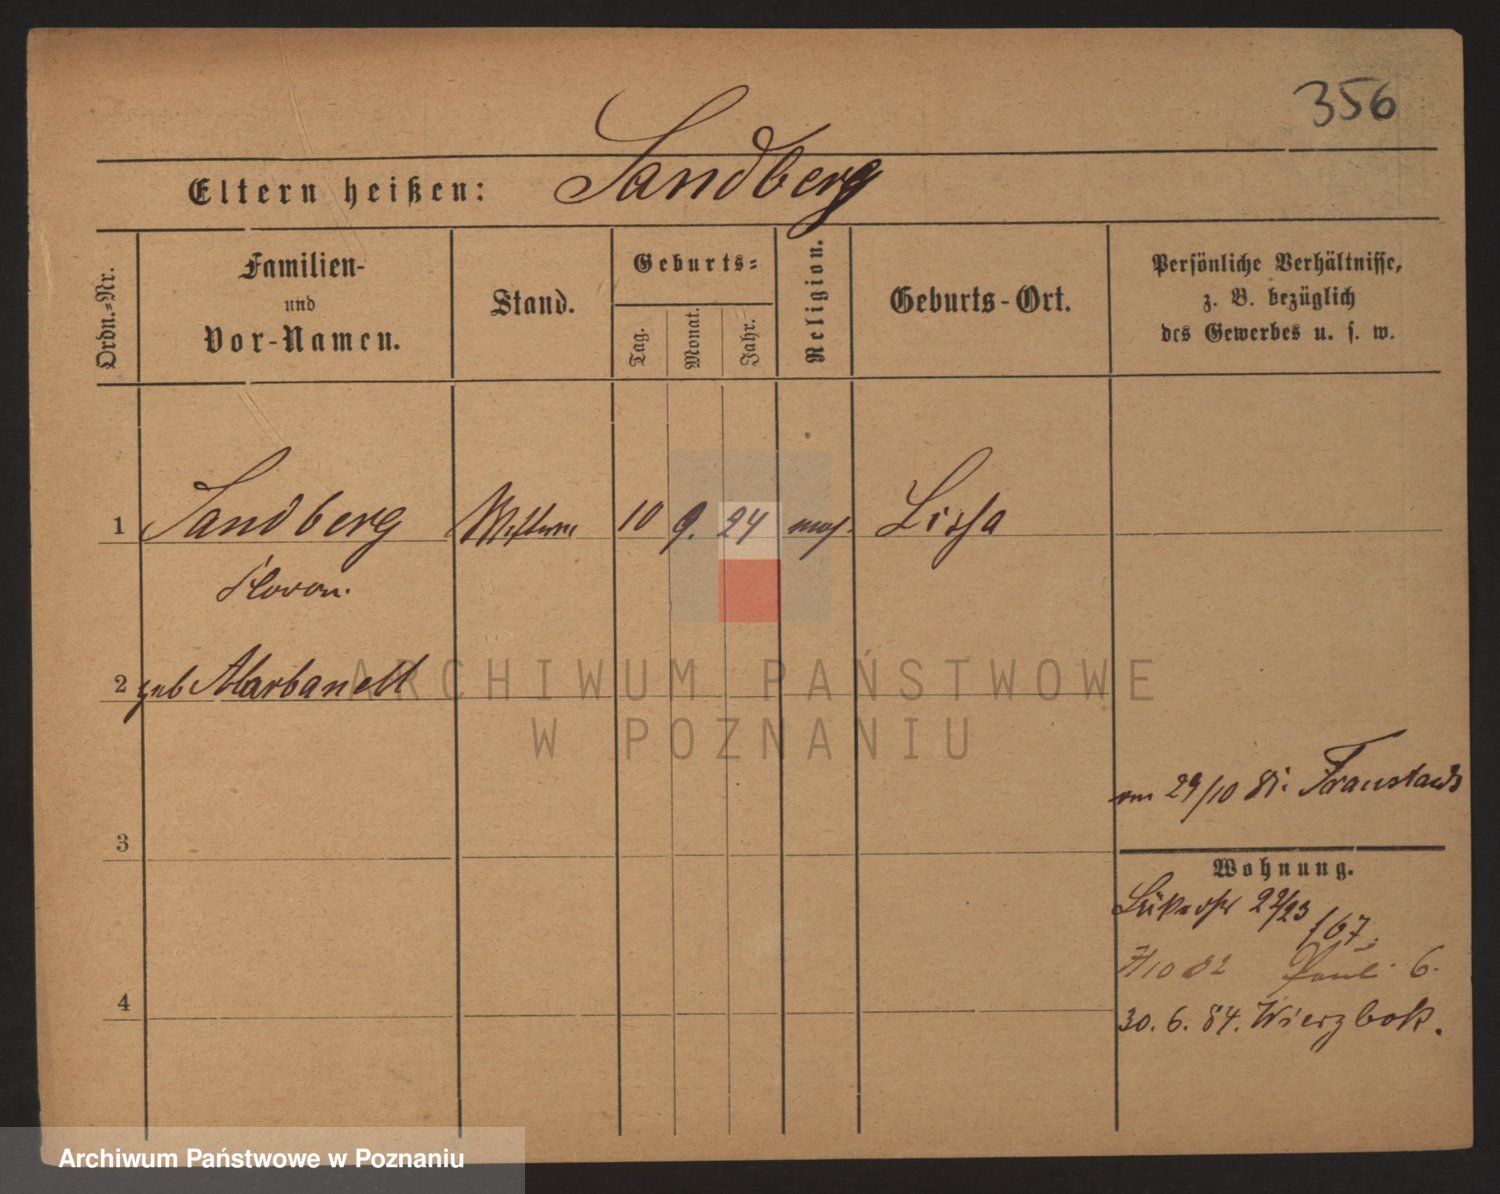 356
Eltern heißen: Sandberg
Ordn.-Nr.
Familien-
und
Vor-Namen.
Stand.
Geburts-
Tag.
Monat.
Jahr.
Religion.
Geburts-Ort.
Persönliche Verhältnisse,
z. B. bezüglich
des Gewerbes u. s. w.
1 Sandberg 10 9. 24 mos. Lissa
2 geb Abarbanell
ARCHIWUM PAŃSTWOWE
W POZNANIU
von 29/10 81. Fraustadt
3
Wohnung.
22/23
167.
7/10 82 Pauli 6.
4
30. 6. 84. Wierzbok.
Archiwum Państwowe w Poznaniu